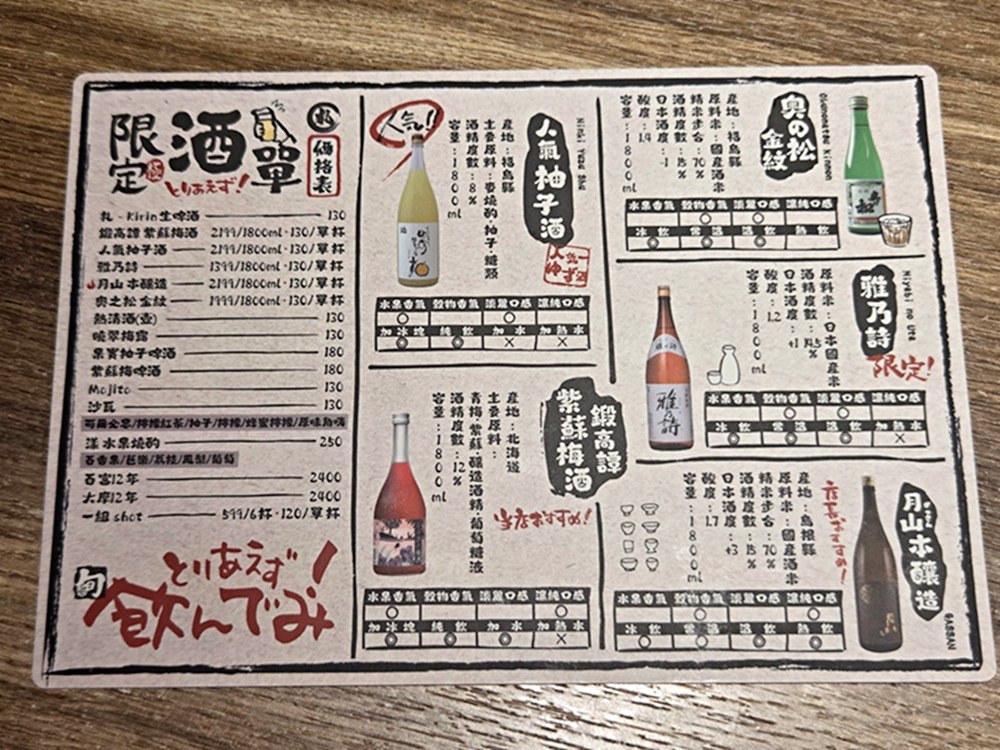 限定
酒單
とりあえず!
價格表
札-Kirin生啤酒 130
鍛高譚 紫蘇梅酒 2199/1800ml·130/單杯
人氣柚子酒 2199/1800ml·130/單杯
雅乃詩 1399/1800ml·130/單杯
月山 本釀造 2199/1800ml·130/單杯
奧之松 金紋 1999/1800ml·130/單杯
熱清酒(壺) 130
曉翠梅露 130
果實柚子啤酒 180
紫蘇梅啤酒 180
Mojito 130
沙瓦 130
可爾必思/檸檬紅茶/柚子/檸檬/蜂蜜檸檬/原味角嗨
漾水果燒酌 250
百香果/芭樂/荔枝/鳳梨/葡萄
百富12年 2400
大摩12年 2400
一組 shot 599/6杯·120/單杯
とりあえず!
飲んでみ
人氣!!
人氣柚子酒
Ninki Yuzu Shu
產地:福島縣
主要原料:麥燒酌·柚子·糖類
酒精度數:8%
容量:1800ml
水果香氣 穀物香氣 淡麗口感 濃純口感
○ ○
加冰塊 純飲 加水 加熱水
◎ ◎ × ×
鍛高譚
紫蘇梅酒
產地:北海道
主要原料:
青梅·紫蘇·釀造酒精·葡萄糖液
酒精度數:12%
容量:1800ml
水果香氣 穀物香氣 淡麗口感 濃純口感
○ ○
加冰塊 純飲 加水 加熱水
◎ ◎ ◎ ×
奧の松
金紋
產地:福島縣
原料米:國產酒米
精米步合:70%
酒精度數:15%
日本酒度:-1
酸度:1.4
容量:1800ml
水果香氣 穀物香氣 淡麗口感 濃純口感
○ ○
冰飲 常溫 溫飲 熱飲
◎ ◎ ◎ ◎
雅乃詩
Miyabi no Uta
限定!
原料米:日本國產米
酒精度數:14.5%
日本酒度:+1
酸度:1.2
容量:1800ml
水果香氣 穀物香氣 淡麗口感 濃純口感
○ ○
冰飲 常溫 溫飲 熱飲
◎ ◎ ◎ ×
月山本釀造
GASSAN
店長おすすめ!
產地:島根縣
原料米:國產酒米
精米步合:70%
酒精度數:15%
日本酒度:+3
酸度:1.7
容量:1800ml
水果香氣 穀物香氣 淡麗口感 濃純口感
○ ○
冰飲 常溫 溫飲 熱飲
◎ ◎ ◎ ◎